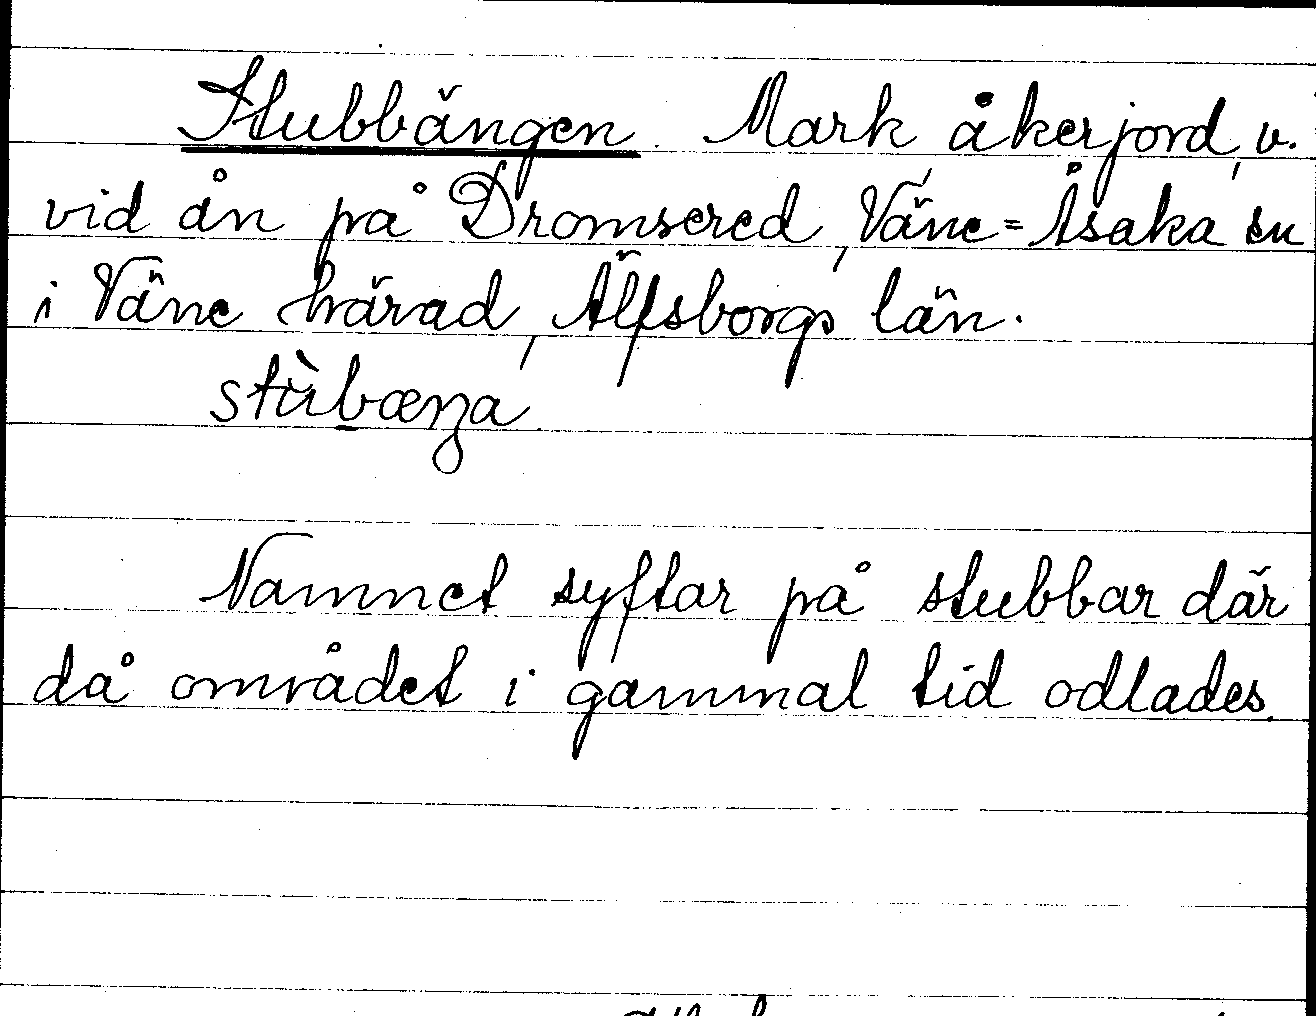 Stubbängen. Mark åkerjord, v.
vid ån på Dromsered, Väne=Åsaka sn
i Väne härad, Älfsborgs län.
stùbæŋa

Namnet syftar på stubbar där
då området i gammal tid odlades.